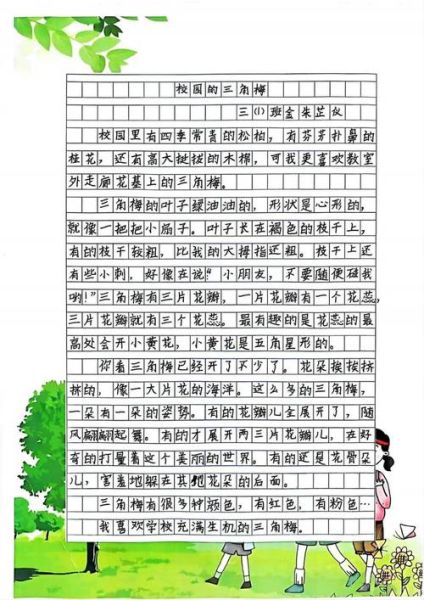 校园的三角梅
三(1)班金朱芷仪
校园里有四季常青的松柏，有芬芳扑鼻的
桂花，还有高大挺拔的木棉，可我更喜欢教室
外走廊花基上的三角梅。
三角梅的叶子绿油油的，形状是心形的，
就像一把把小扇子。叶子长在褐色的枝干上，
有的枝干较粗，比我的大拇指还粗。枝干上还
有些小刺，好像在说“小朋友，不要随便碰我
哟！”三角梅有三片花瓣，一片花瓣有一个花蕊，
三片花瓣就有三个花蕊。最有趣的是花蕊的最
高处会开小黄花，小黄花是五角星形的。
你看三角梅已经开了不少了。花朵挨挨挤
挤的，像一大片花的海洋。这么多的三角梅，
一朵有一朵的姿势。有的花瓣儿全展开了，随
风翩翩起舞。有的才展开两三片花瓣儿，在好
奇的打量着这个美丽的世界。有的还是花骨朵
儿，害羞地躲在其他花朵的后面。
三角梅有很多种颜色，有红色，有粉色…
我喜欢学校充满生机的三角梅。